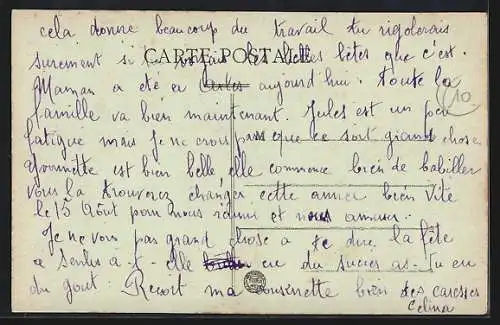 cela donne beaucoup du travail tu rigolerais
CARTE POSTALE
surement si tu voiait les belles bêtes que c'est.
Maman a été en aujourd'hui. Toute la
10
famille va bien maintenant. Jules est un peu
fatigué mais je ne crois pas que ce soit grand chose
est bien belle elle commence bien de babiller
vous la trouverez changer cette année bien vite
le 15 Août pour nous réunir et nous amuser.
Je ne vois pas grand chose a te dire, la fête
a Senlis a-t-elle eu du succes as-tu eu
du gout. Recoit ma cousinette bien des caresses
Celina